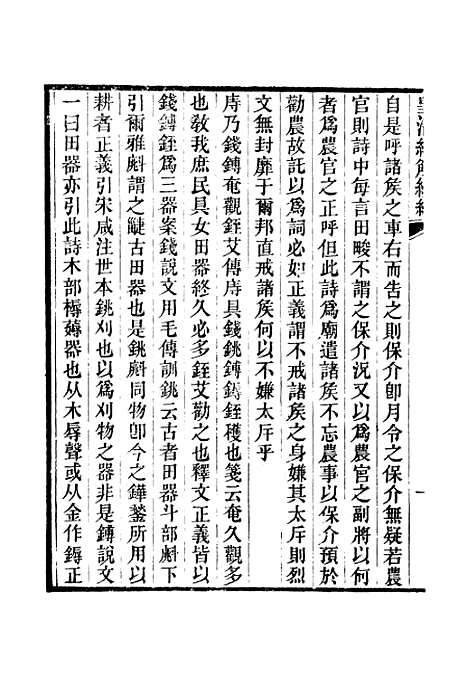 皇清經解續編
自是呼諸矦之車右而告之則保介卽月令之保介無疑若農
官則詩中每言田畯不謂之保介況又以爲農官之副將以何
者爲農官之正呼但此詩爲廟遣諸矦不忘農事以保介預於
勸農故託以爲詞必如正義謂不戒諸矦之身嫌其太斥則烈
文無封靡于爾邦直戒諸矦何以不嫌太斥乎
庤乃錢鎛奄觀銍艾傳庤具錢銚鎛鎒銍穫也箋云奄久觀多
也敎我庶民具女田器終久必多銍艾勸之也釋文正義皆以
錢鎛銍爲三器案錢說文用毛傳訓銚云古者田器斗部㪺下
引爾雅㪺謂之疀古田器也是銚㪺同物卽今之鏵鍫所用以
耕者正義引宋咸注世本銚刈也以爲刈物之器非是鎛說文
一曰田器亦引此詩木部槈薅器也从木辱聲或从金作鎒正